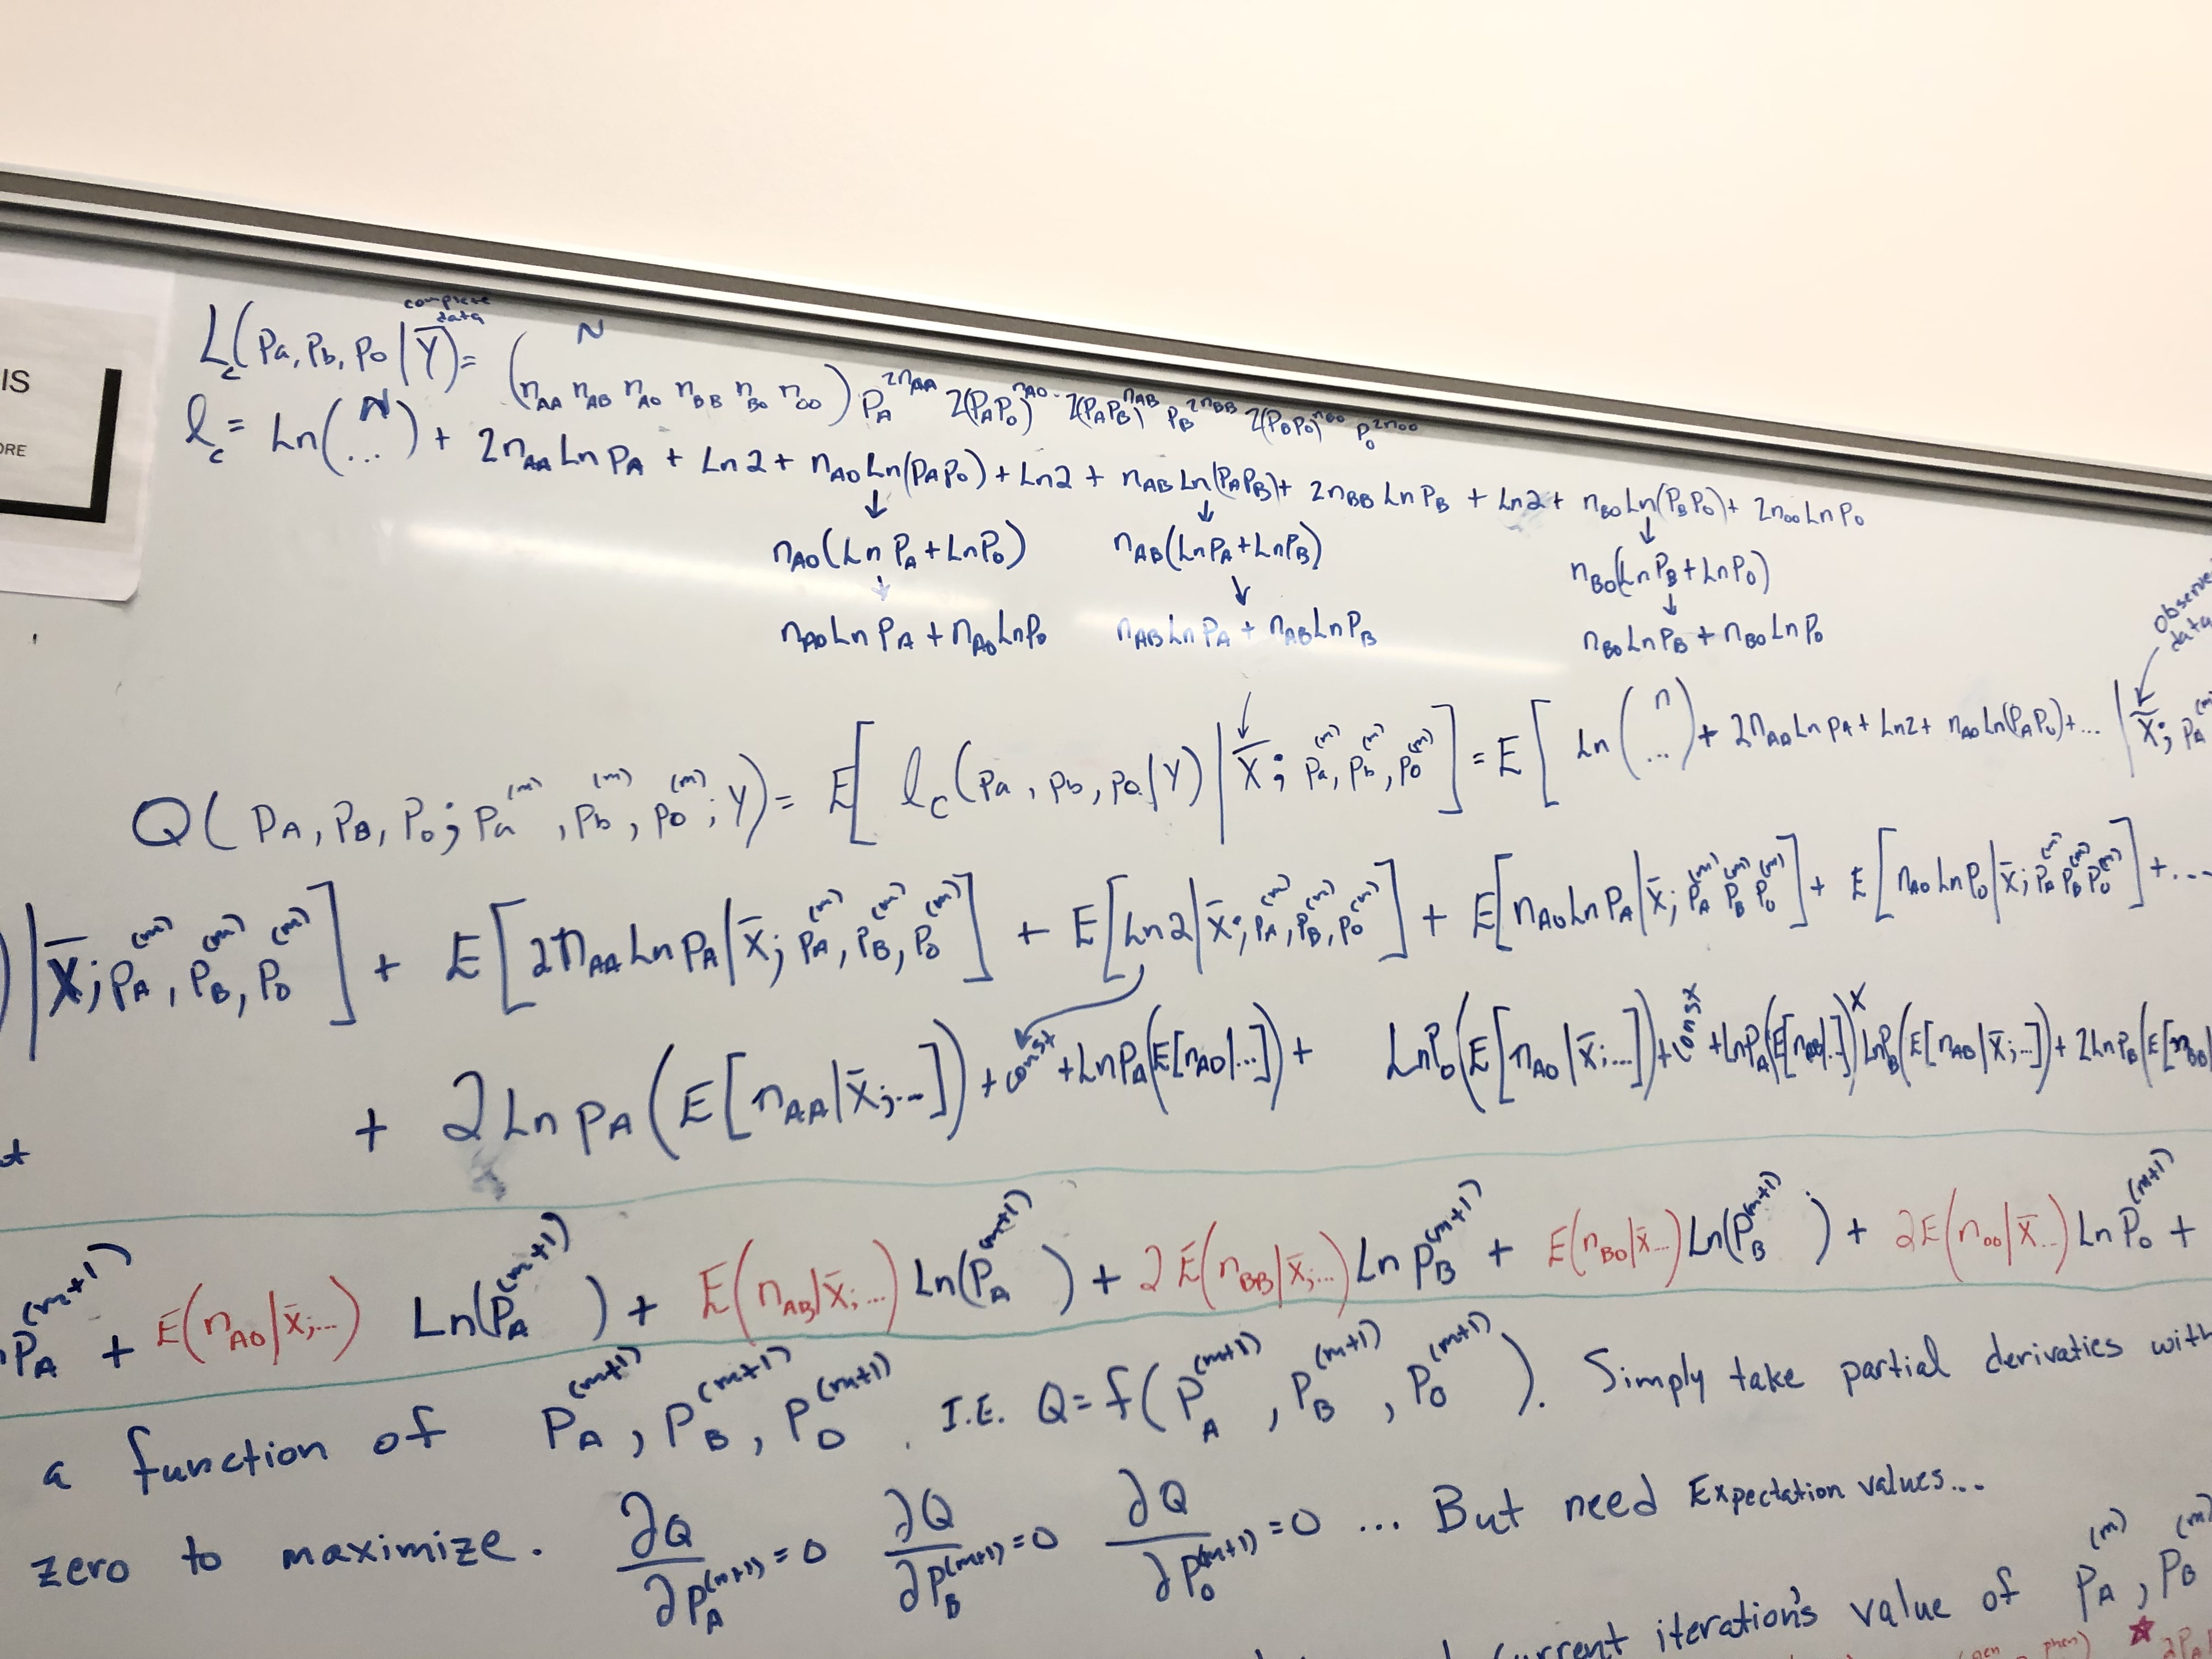 IS
ORE
complete data
L_c(Pa, Pb, Po | Y̅) = (N n_AA n_AB n_AO n_BB n_BO n_OO) P_A^2n_AA 2(P_A P_O)^n_AO · 2(P_A P_B)^n_AB P_B^2n_BB 2(P_B P_O)^n_BO P_O^2n_OO
l_c = Ln(N ...) + 2n_AA Ln P_A + Ln2 + n_AO Ln(P_A P_O) + Ln2 + n_AB Ln(P_A P_B) + 2n_BB Ln P_B + Ln2 + n_BO Ln(P_B P_O) + 2n_OO Ln P_O
↓ ↓ ↓
n_AO(Ln P_A + Ln P_O) n_AB(Ln P_A + Ln P_B) n_BO(Ln P_B + Ln P_O)
↓ ↓ ↓
n_AO Ln P_A + n_AO Ln P_O n_AB Ln P_A + n_AB Ln P_B n_BO Ln P_B + n_BO Ln P_O
data
Q(P_A, P_B, P_O; Pa^(m), Pb^(m), Po^(m); Y) = E[l_c(Pa, Pb, Po | Y) | X̅; Pa^(m), Pb^(m), Po^(m)] = E[Ln(n ...) + 2n_AA Ln P_A + Ln2 + n_AO Ln(P_A P_O) + ... | X̅; P_A
) | X̅; P_A^(m), P_B^(m), P_O^(m)] + E[2n_AA Ln P_A | X̅; P_A^(m), P_B^(m), P_O^(m)] + E[Ln2 | X̅; P_A^(m), P_B^(m), P_O^(m)] + E[n_AO Ln P_A | X̅; P_A^(m) P_B^(m) P_O^(m)] + E[n_AO Ln P_O | X̅; P_A^(m) P_B^(m) P_O^(m)] + ....
+ 2 Ln P_A (E[n_AA | X̅; ...]) + const + Ln P_A (E[n_AO | ...]) + Ln P_O (E[n_AO | X̅; ...]) + const + Ln P_A (E[n_AB | ...]) Ln P_B (E[n_AB | X̅; ...]) + 2 Ln P_B (E[n_BB |
P_A^(m+1) + E(n_AO | X̅; ...) Ln(P_A^(m+1)) + E(n_AB | X̅; ...) Ln(P_A^(m+1)) + 2E(n_BB | X̅; ...) Ln P_B^(m+1) + E(n_BO | X̅ ...) Ln(P_B^(m+1)) + 2E(n_OO | X̅ ...) Ln P_O^(m+1) +
a function of P_A^(m+1), P_B^(m+1), P_O^(m+1). I.E. Q = f(P_A^(m+1), P_B^(m+1), P_O^(m+1)). Simply take partial derivaties with
zero to maximize. ∂Q/∂P_A^(m+1) = 0 ∂Q/∂P_B^(m+1) = 0 ∂Q/∂P_O^(m+1) = 0 ... But need Expectation values...
current iteration's value of P_A^(m), P_B^(m)